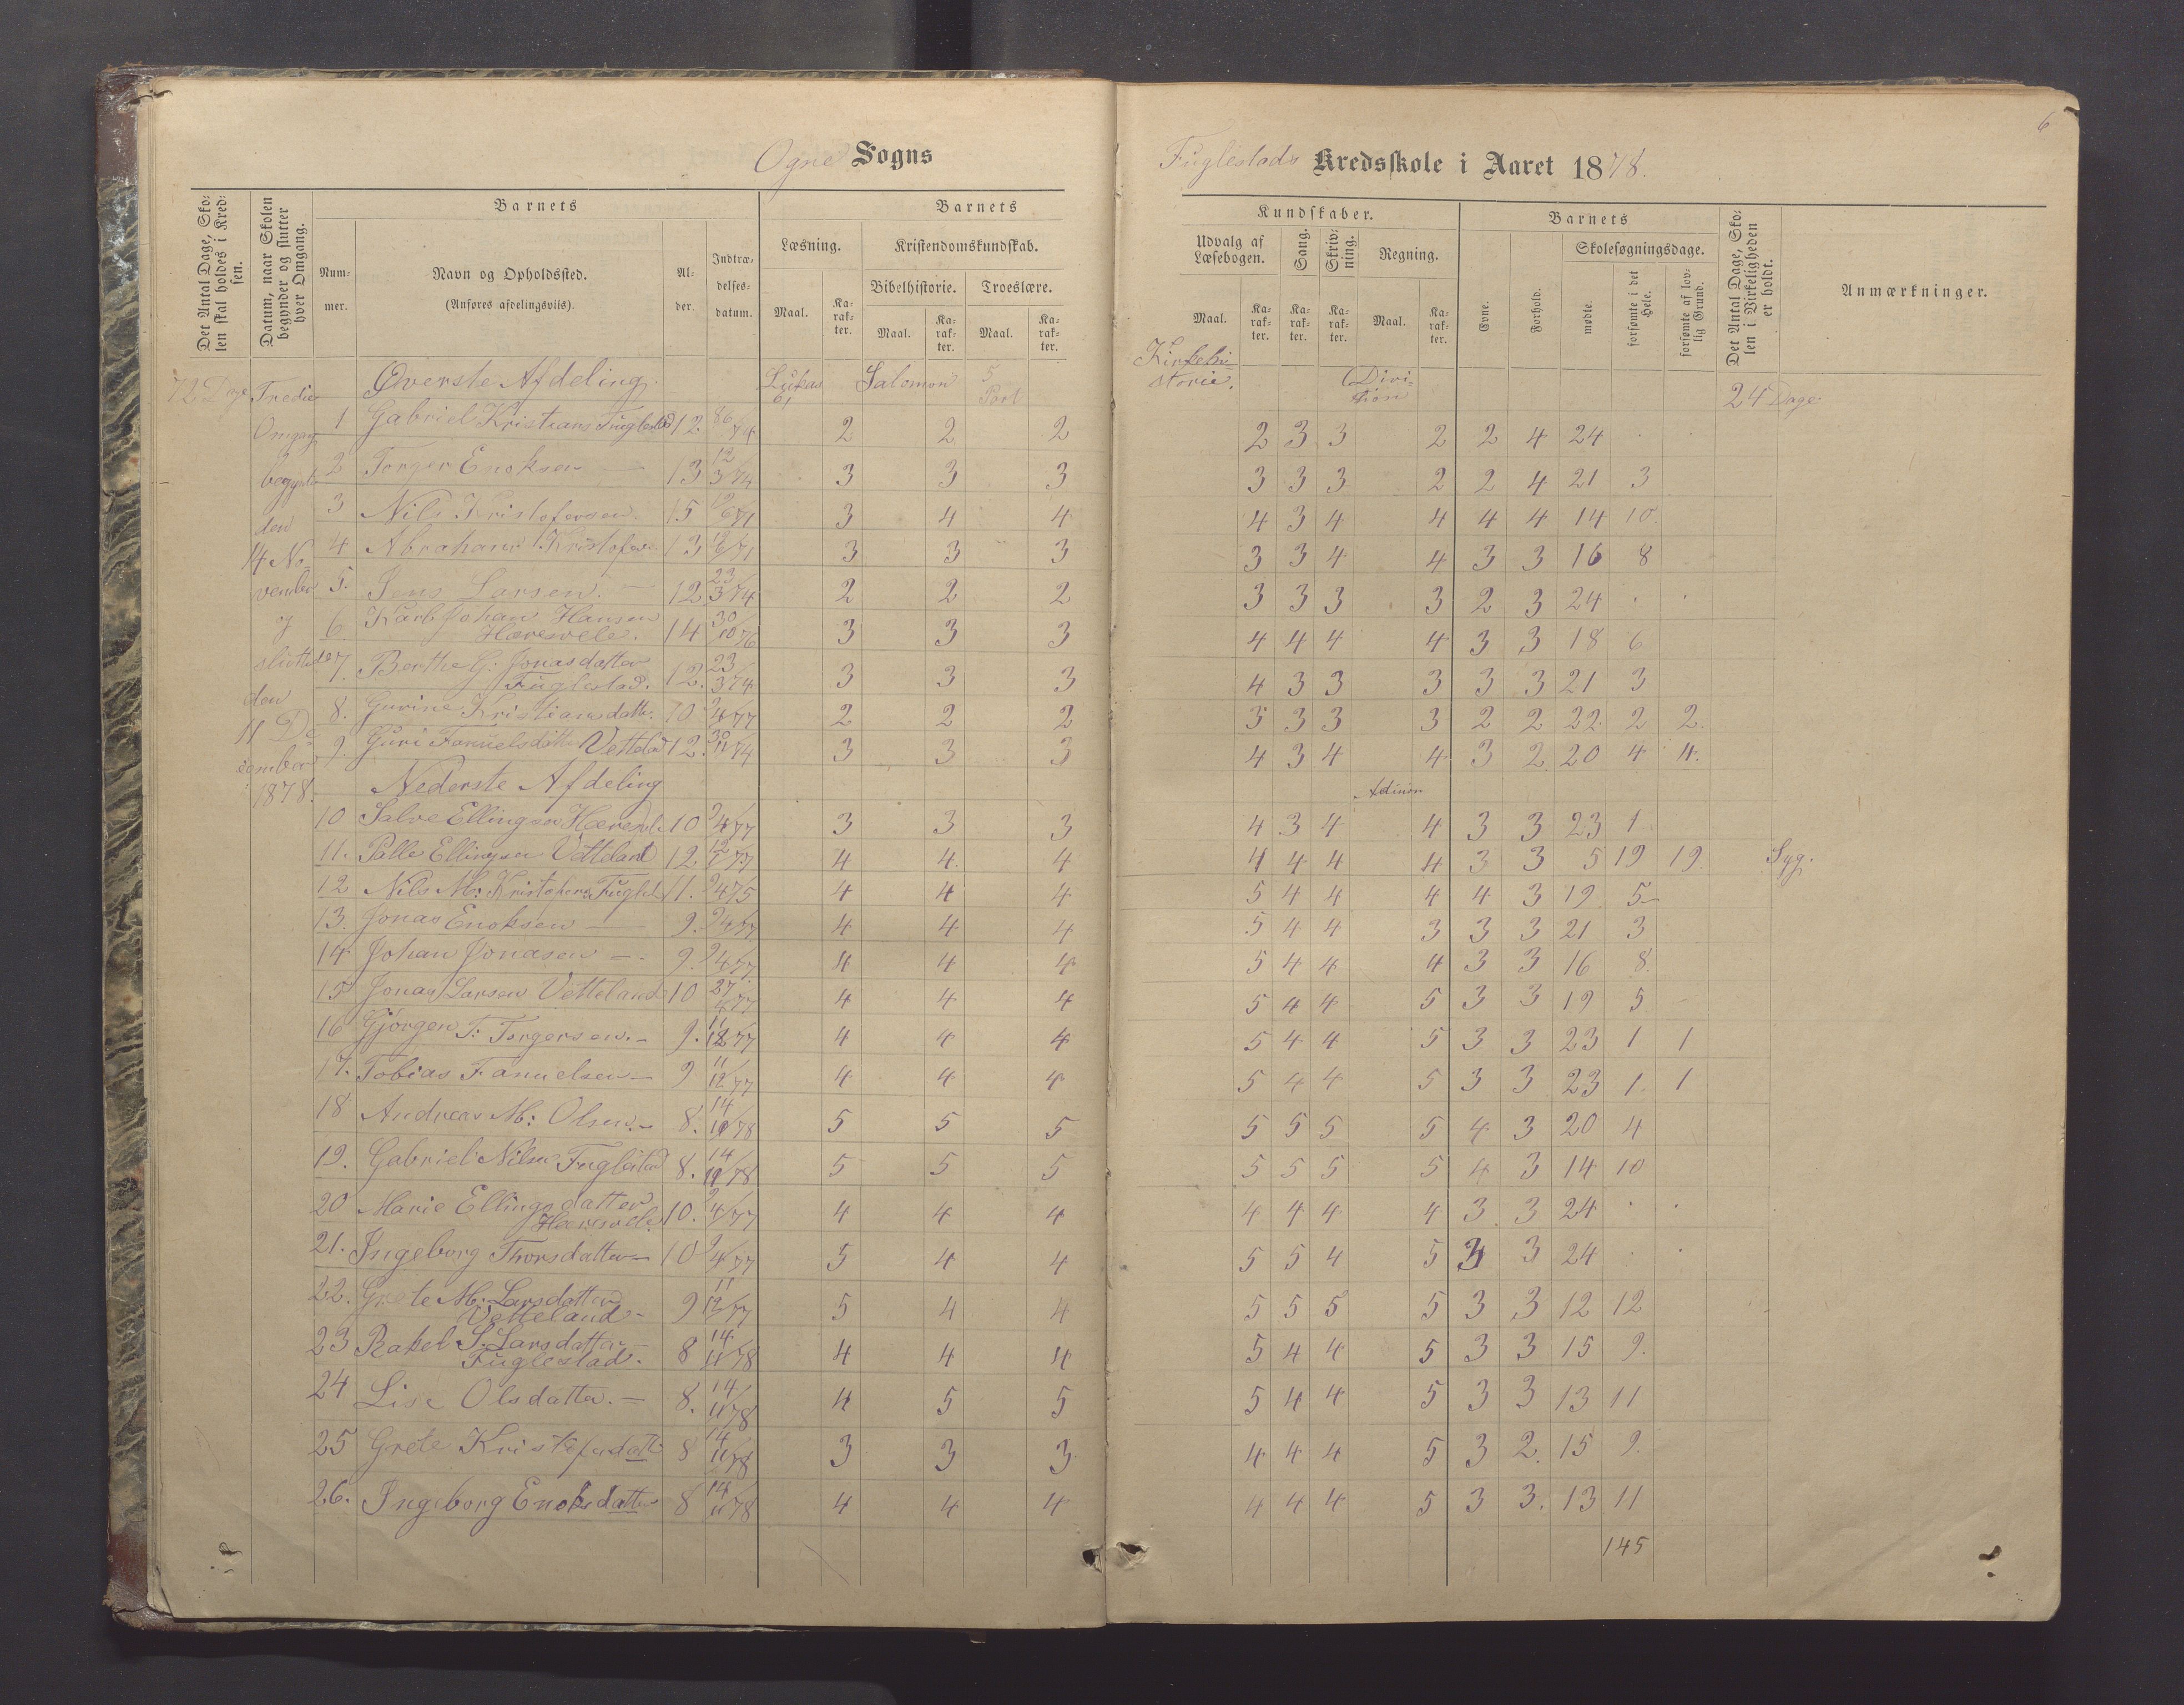 6
Ogne Sogns
Fuglestads Kredsskole i Aaret 1878.
Det Antal Dage, Skolen skal holdes i Kredsen.
Datum, naar Skolen begynder og slutter hver Omgang.
Barnets
Nummer.
Navn og Opholdssted.
(Anføres afdelingsviis).
Alder.
Indtrædelsesdatum.
Barnets
Læsning.
Maal.
Karakter.
Kristendomskundskab.
Bibelhistorie.
Maal.
Karakter.
Troeslære.
Maal.
Karakter.
Kundskaber.
Udvalg af Læsebogen.
Maal.
Karakter.
Sang.
Karakter.
Skrivning.
Karakter.
Regning.
Maal.
Karakter.
Barnets
Evne.
Forhold.
Skolesøgningsdage.
mødte.
forsømte i det Hele.
forsømte af lovlig Grund.
Det Antal Dage, Skolen i Virkeligheden er holdt.
Anmærkninger.
72 Dage
Tredie
Omgag
begynte
den
14 No
vember
og
sluttede
den
11 De
cember
1878.
Øverste Afdeling. Lukas Salomon 5 Part Kirkehistorie. Division 24 Dage
1 Gabriel Kristians Fuglestad 12 2 2 2 2 3 3 2 2 4 24 . .
2 Torger Enoksen — 13 12/3 74 3 3 3 3 3 3 2 2 4 21 3
3 Nils Kristofersen 15 3 4 4 4 3 4 4 4 4 14 10.
4 Abraham Kristofers 13 3 3 3 3 3 4 4 3 3 16 8
5. Jens Larsen. — 12 23/3 74 2 2 2 3 3 3 3 2 3 24 . .
6 Karl Johan Hansen Hærevele. 14 30/10 76 3 3 3 4 4 4 4 3 3 18 6
7. Berthe G: Jonasdatter Fuglestad. 12. 23/3 74 3 3 3 4 3 3 3 3 3 21 3
8. Gurine Kristiansdatte. 10 9/4 77 2 2 2 3 3 3 3 2 2 22 2 2.
9. Guri Fanuelsdatte Vetteland 12. 30/11 74 3 3 3 4 3 4 4 3 2 20 4 4.
Nederste Afdeling Adition
10 Salve Ellingsen Hærevele 10 9/4 77 3 3 3 4 3 4 4 3 3 23 1
11. Palle Ellingsen Vetteland 12. 4 4 4 4 4 4 4 3 3 5 19 19. Syg.
12 Nils M: Kristofers Fuglest 11. 9/4 75 4 4 4 5 4 4 4 4 3 19 5
13. Jonas Enoksen — 9. 9/4 77 4 4 4 5 4 4 3 3 3 21 3
14 Johan Jonasen — 9. 9/4 77 4 4 4 5 4 4 4 3 3 16 8.
15 Jonas Larsen Vetteland 10 27/4 77 4 4 4 5 4 4 5 3 3 19 5
16 Gjørgen T: Torgersen. — 9. 11/12 77 4 4 4 5 4 4 5 3 3 23 1 1
17. Tobias Fanuelsen — 9 11/12 77 4 4 4 5 4 4 5 3 3 23 1. 1
18 Andreas M: Olsen. — 8. 14/11 78 5 5 5 5 5 5 5 4 3 20 4
19. Gabriel Nilsen Fuglestad 8. 14/11 78 5 5 5 5 5 5 5 4 3 14 10
20 Marie Ellingsdatter Hærevele 10. 9/4 77 4 4 4 4 4 4 4 3 3 24 . .
21. Ingeborg Thorsdatter — 10 9/4 77 5 4 4 5 5 4 5 3 3 24 . .
22. Grete M: Larsdatter Vetteland — 9 11/12 77 5 4 4 5 5 5 5 3 3 12 12
23 Rakel S. Larsdatter Fuglestad. 8 14/11 78 4 4 4 5 4 4 5 3 3 15 9.
24 Lise Olsdatter. — 8. 14/11 78 4 5 5 5 4 4 5 3 3 13 11
25 Grete Kristofersdatt 8 14/11 78 3 3 3 4 4 4 5 3 2. 15 9.
26. Ingeborg Enoksdatter 8 14/11 78 4 4 4 4 4 4 5 3 3. 13 11
145